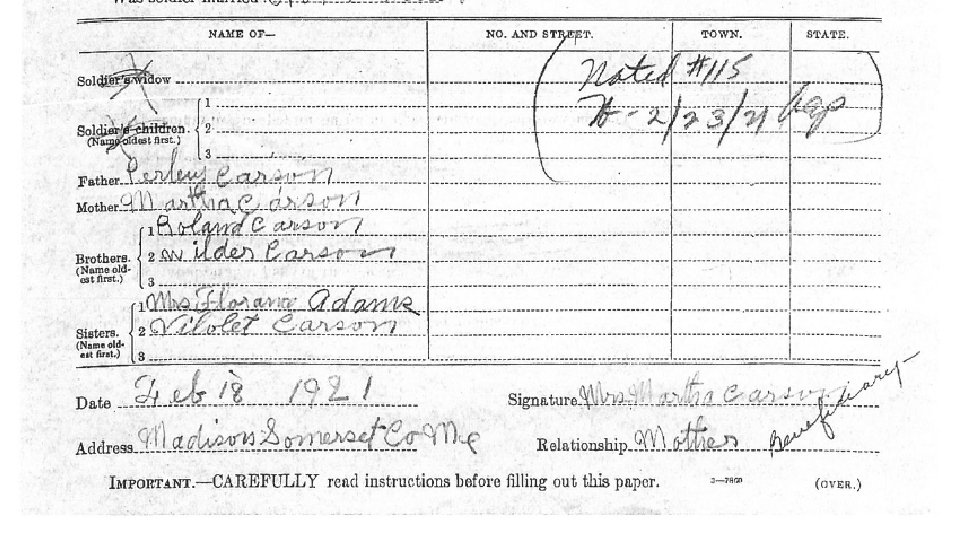 Was soldier married?
NAME OF— NO. AND STREET. TOWN. STATE.
Soldier's widow
Noted #115
H-2/23/21
Soldier's children. 1
2
(Name oldest first.)
3
Father Perley Carson
Mother Martha Carson
Brothers. 1 Roland Carson
(Name oldest first.) 2 Wilder Carson
3
Sisters. 1 Mrs Adams
(Name oldest first.) 2 Vilolet Carson
3
Date Feb 18 1921 Signature Mrs Martha Carson
Beneficiary
Address Madison Somerset Co Me Relationship Mother
IMPORTANT.—CAREFULLY read instructions before filling out this paper. 3—7860 (OVER.)